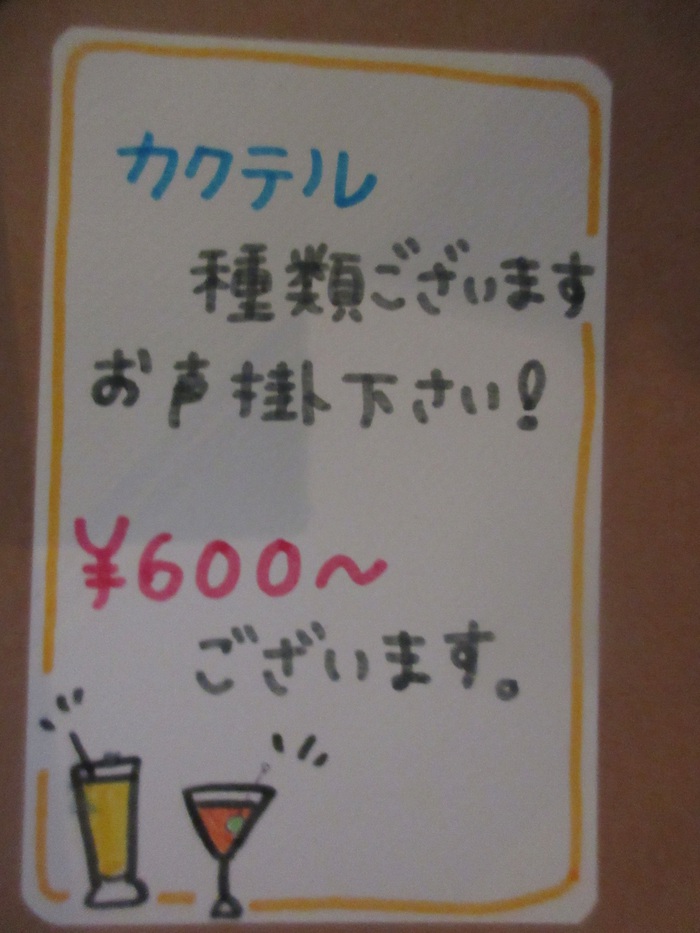 カクテル
種類ございます
お声掛下さい!
¥600～
ございます。